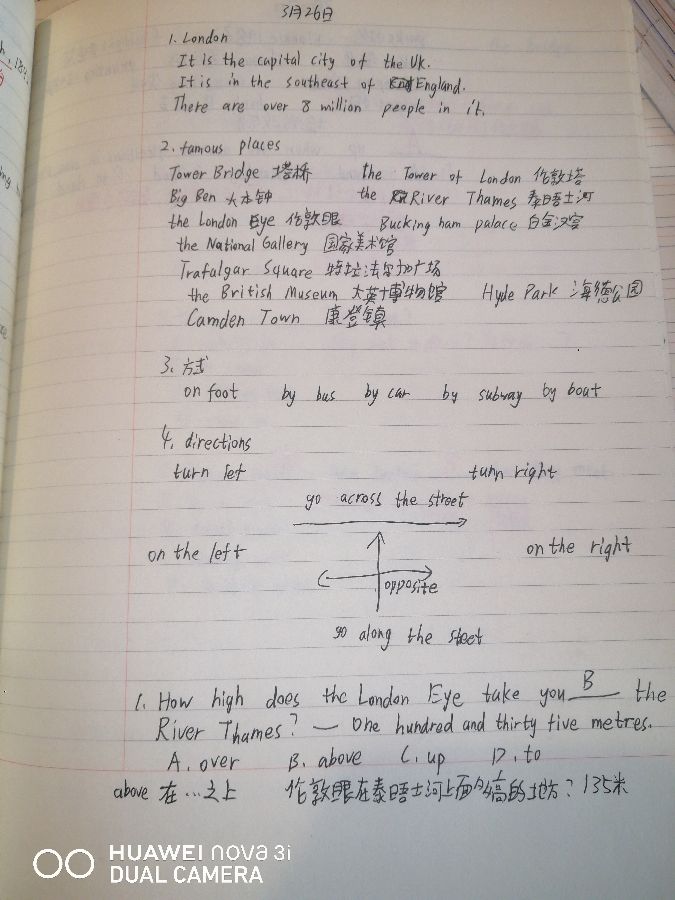 3月26日
1. London
It is the capital city of the UK.
It is in the southeast of England.
There are over 8 million people in it.
2. famous places
Tower Bridge 塔桥 the Tower of London 伦敦塔
Big Ben 大本钟 the River Thames 泰晤士河
the London Eye 伦敦眼 Bucking ham palace 白金汉宫
the National Gallery 国家美术馆
Trafalgar Square 特拉法尔加广场
the British Museum 大英博物馆 Hyde Park 海德公园
Camden Town 康登镇
3. 方式
on foot by bus by car by subway by boat
4. directions
turn let turn right
go across the street
on the left on the right
opposite
go along the steet
1. How high does the London Eye take you B the
River Thames? — One hundred and thirty five metres.
A. over B. above C. up D. to
above 在…之上 伦敦眼在泰晤士河上面多高的地方? 135米
HUAWEI nova 3i
DUAL CAMERA